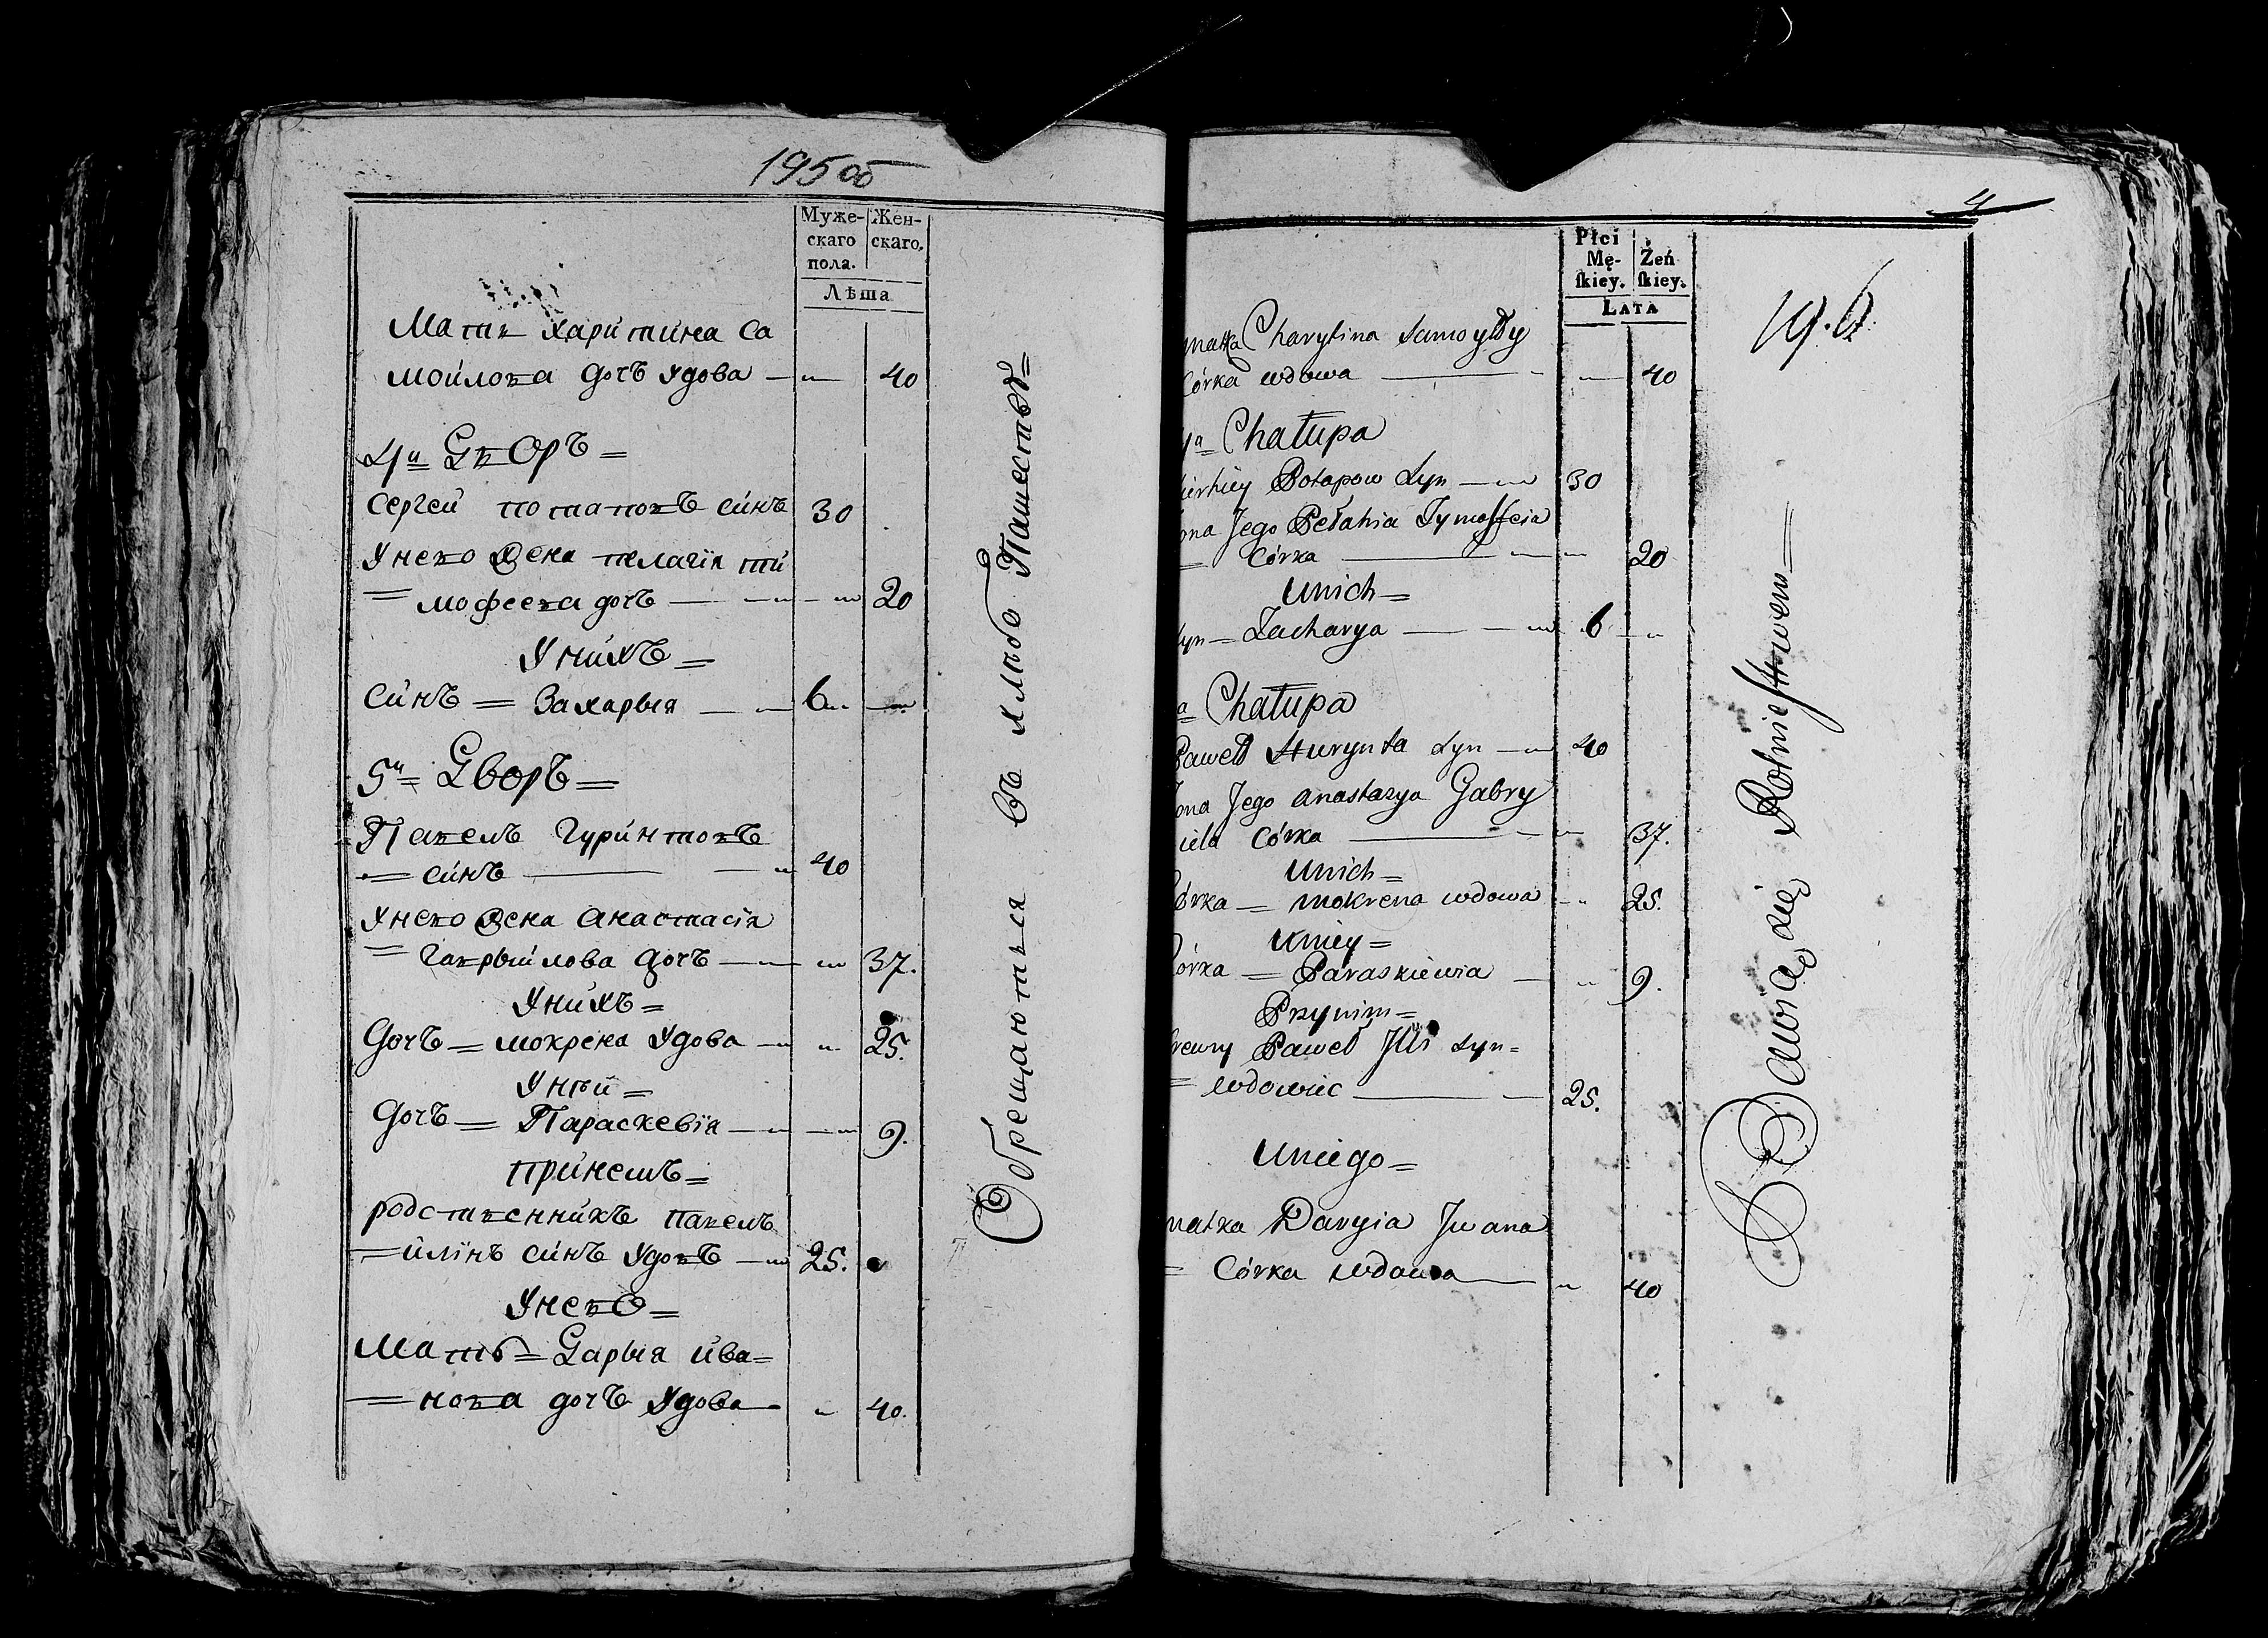 195 об
Муже-
скаго
пола.
Жен-
скаго.
Лѣта
Мать харитина са
мойлова дочъ удова — „ 40
4й Дворъ =
Сергей потаповъ синъ 30
унево жена пелагія ти
= мофеева дочъ — „ 20
унихъ =
синъ = Захарыя — 6 „
5й = Дворъ =
Павелъ Гуринтовъ
= синъ — 40
унево жена анастасія
= гаврыйлова дочъ — „ 37.
унихъ =
Дочъ = мокрена удова — „ 25.
унѣй =
Дочъ = Параскевія — „ 9.
принемъ =
родственникъ павелъ
= илінъ синъ удовъ — 25.
унево =
Мать = Дарыя ива=
= нова дочъ удова „ 40.
Обрещаються въ хлѣбо Пашествѣ =
4
196.
Płci
Mę-
skiey.
Żeń
skiey.
LATA
matka Charytina Samoyły
Córka wdowa — „ 40
4a Chałupa
ierhiey Potapow Syn — 30
ona Jego Pełahia Tymoffeia
= Córka — „ 20
Unich =
Syn = Zacharya — 6 „
a Chałupa
Paweł Hurynta Syn — 40
ona Jego Anastazya Gabry
iela Córka — „ 37.
Unich =
órka = mokrena wdowa „ 25.
Uniey =
órka = Paraskiewia — „ 9.
Przynim =
rewny Paweł Illi Syn =
= wdowiec — 25.
Uniego =
matka Daryia Jwana
= Córka wdowa — „ 40
Bawią się Rolnictwem =